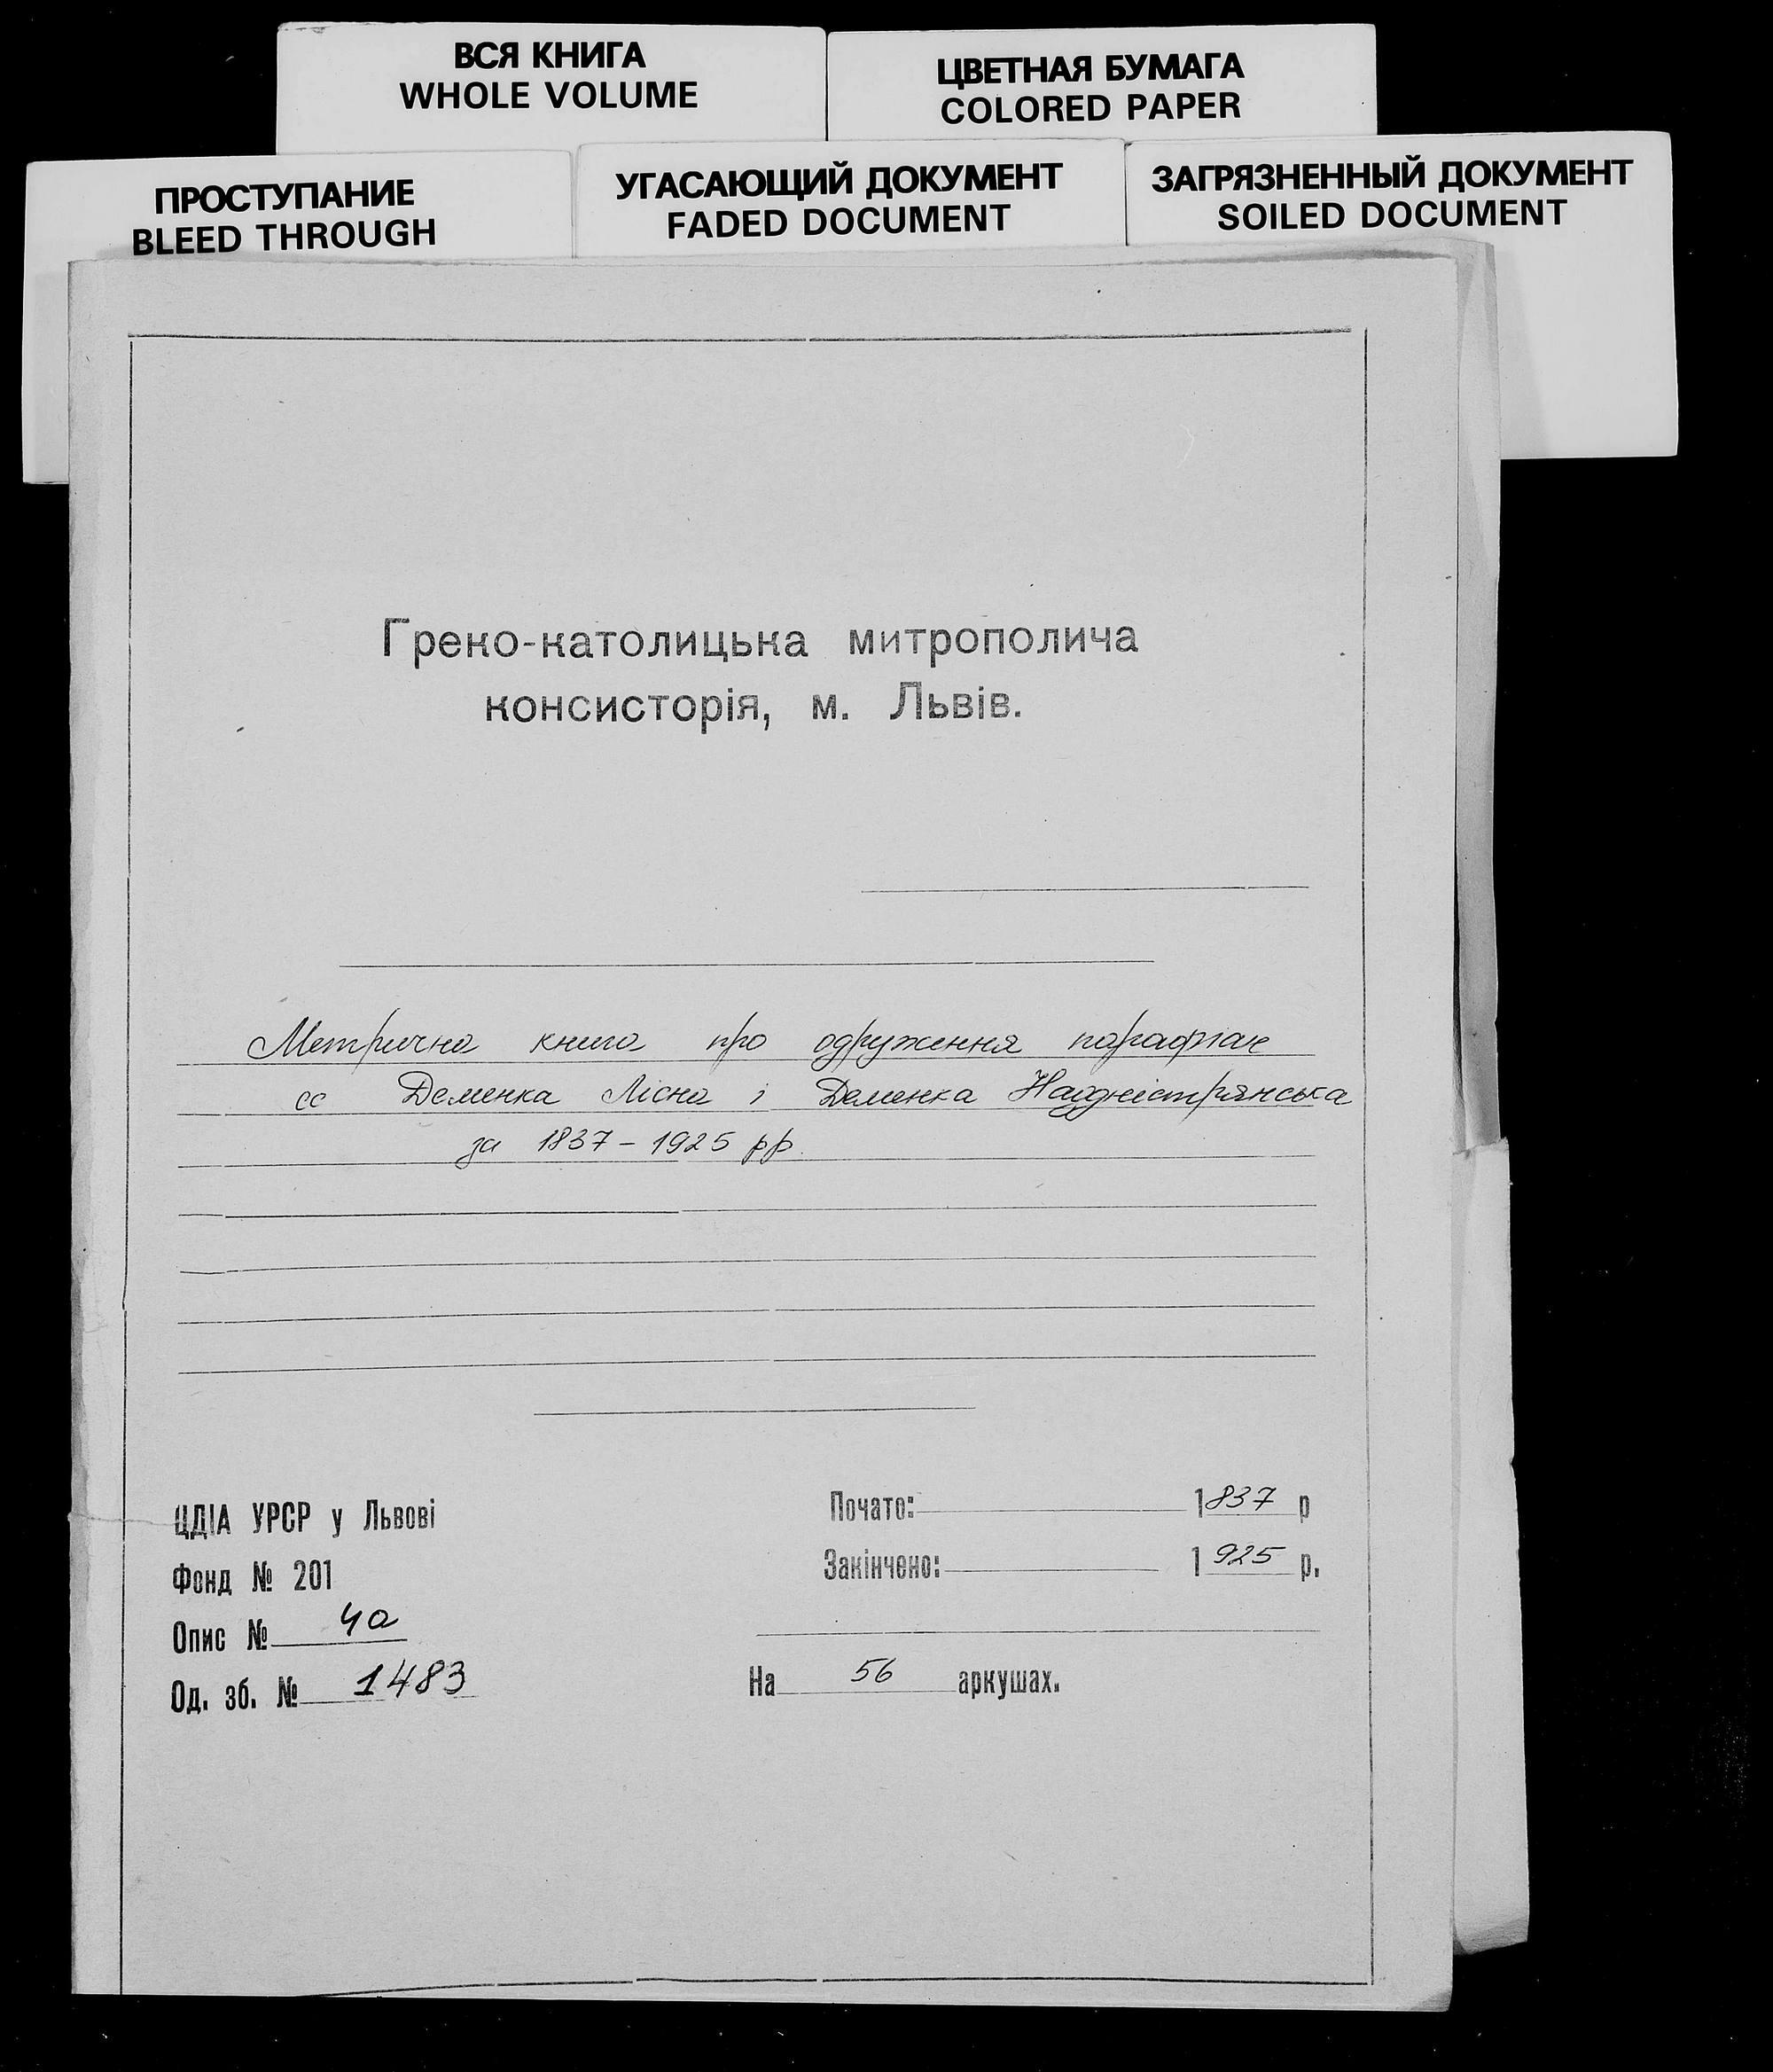 ВСЯ КНИГА
WHOLE VOLUME
ЦВЕТНАЯ БУМАГА
COLORED PAPER
ПРОСТУПАНИЕ
BLEED THROUGH
УГАСАЮЩИЙ ДОКУМЕНТ
FADED DOCUMENT
ЗАГРЯЗНЕННЫЙ ДОКУМЕНТ
SOILED DOCUMENT
Греко-католицька митрополича
консисторія, м. Львів.
Метрична книга про одруження парафіян
сс Деменка Лісна і Деменка Наддністрянська
за 1837-1925 рр.
ЦДІА УРСР у Львові
Фонд № 201
Опис № 4а
Од. зб. № 1483
Почато: 1837 р
Закінчено: 1925 р.
На 56 аркушах.